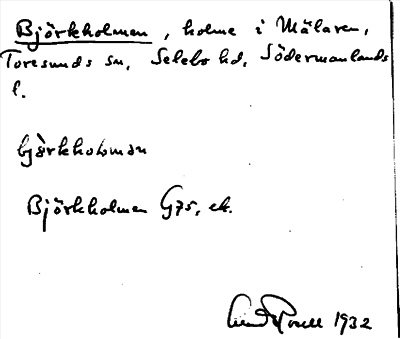 Björkholmen, holme i Mälaren,
Toresunds sn, Selebo hd, Södermanlands
l.
björkholmən
Björkholmen G75, ek.
1932